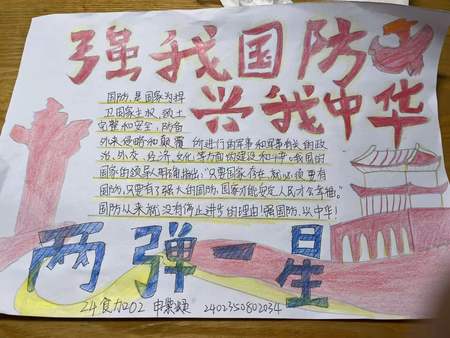 强我国防
兴我中华
国防,是国家为捍
卫国家主权、领土
完整和安全,防备
外来侵略和颠覆,所进行的军事和与军事有关的政
治、外交、经济、文化等方面的建设和斗争。我国的
国家的领导人明确指出,“只要国家存在,就必须要有
国防,只要有了强大的国防,国家才能安定,人民才会幸福。”
国防从来就没有停止进步的理由!强国防,兴中华!
两弹一星
24食加202 申紫 2402350802034